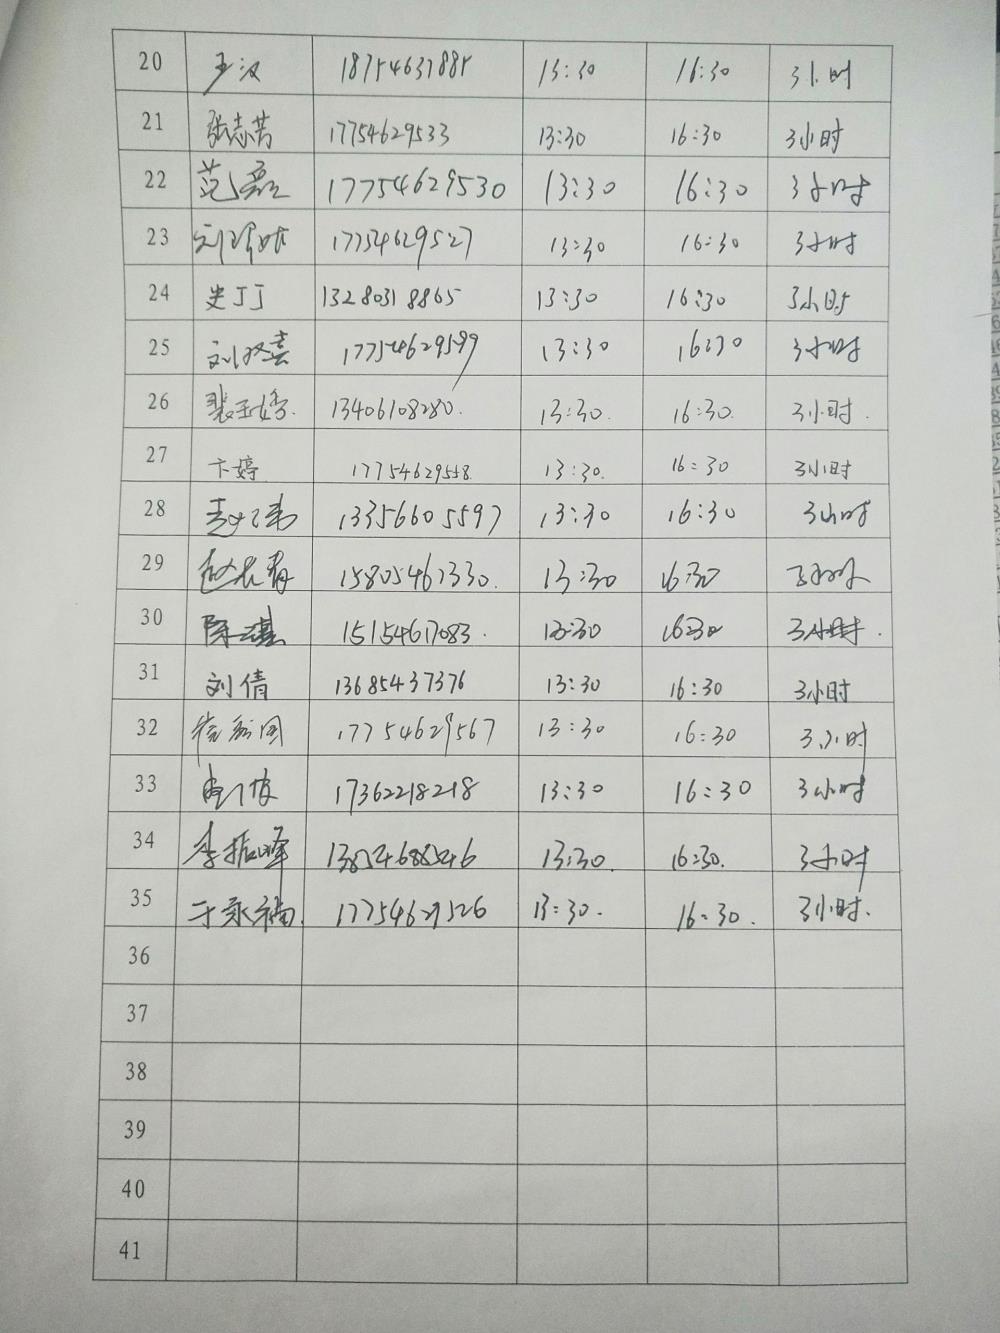 20 王汉 18754637885 13:30 16:30 3小时
21 张志芳 17754629533 13:30 16:30 3小时
22 范磊 17754629530 13:30 16:30 3小时
23 17754629527 13:30 16:30 3小时
24 史丁丁 13280318865 13:30 16:30 3小时
25 刘双喜 17754629599 13:30 16:30 3小时
26 裴玉婷. 13406108280. 13:30. 16:30. 3小时.
27 卞婷 17754629558. 13:30. 16:30 3小时
28 13356605597 13:30 16:30 3小时
29 赵长青 15805461330. 13:30 16:30 3小时
30 15154617083. 13:30 16:30 3小时.
31 刘倩 13685437376 13:30 16:30 3小时
32 17754629567 13:30 16:30 3小时
33 17362218218 13:30 16:30 3小时
34 李振峰 13854688546 13:30. 16:30. 3小时
35 于永福. 17754629526 13:30. 16:30. 3小时.
36
37
38
39
40
41